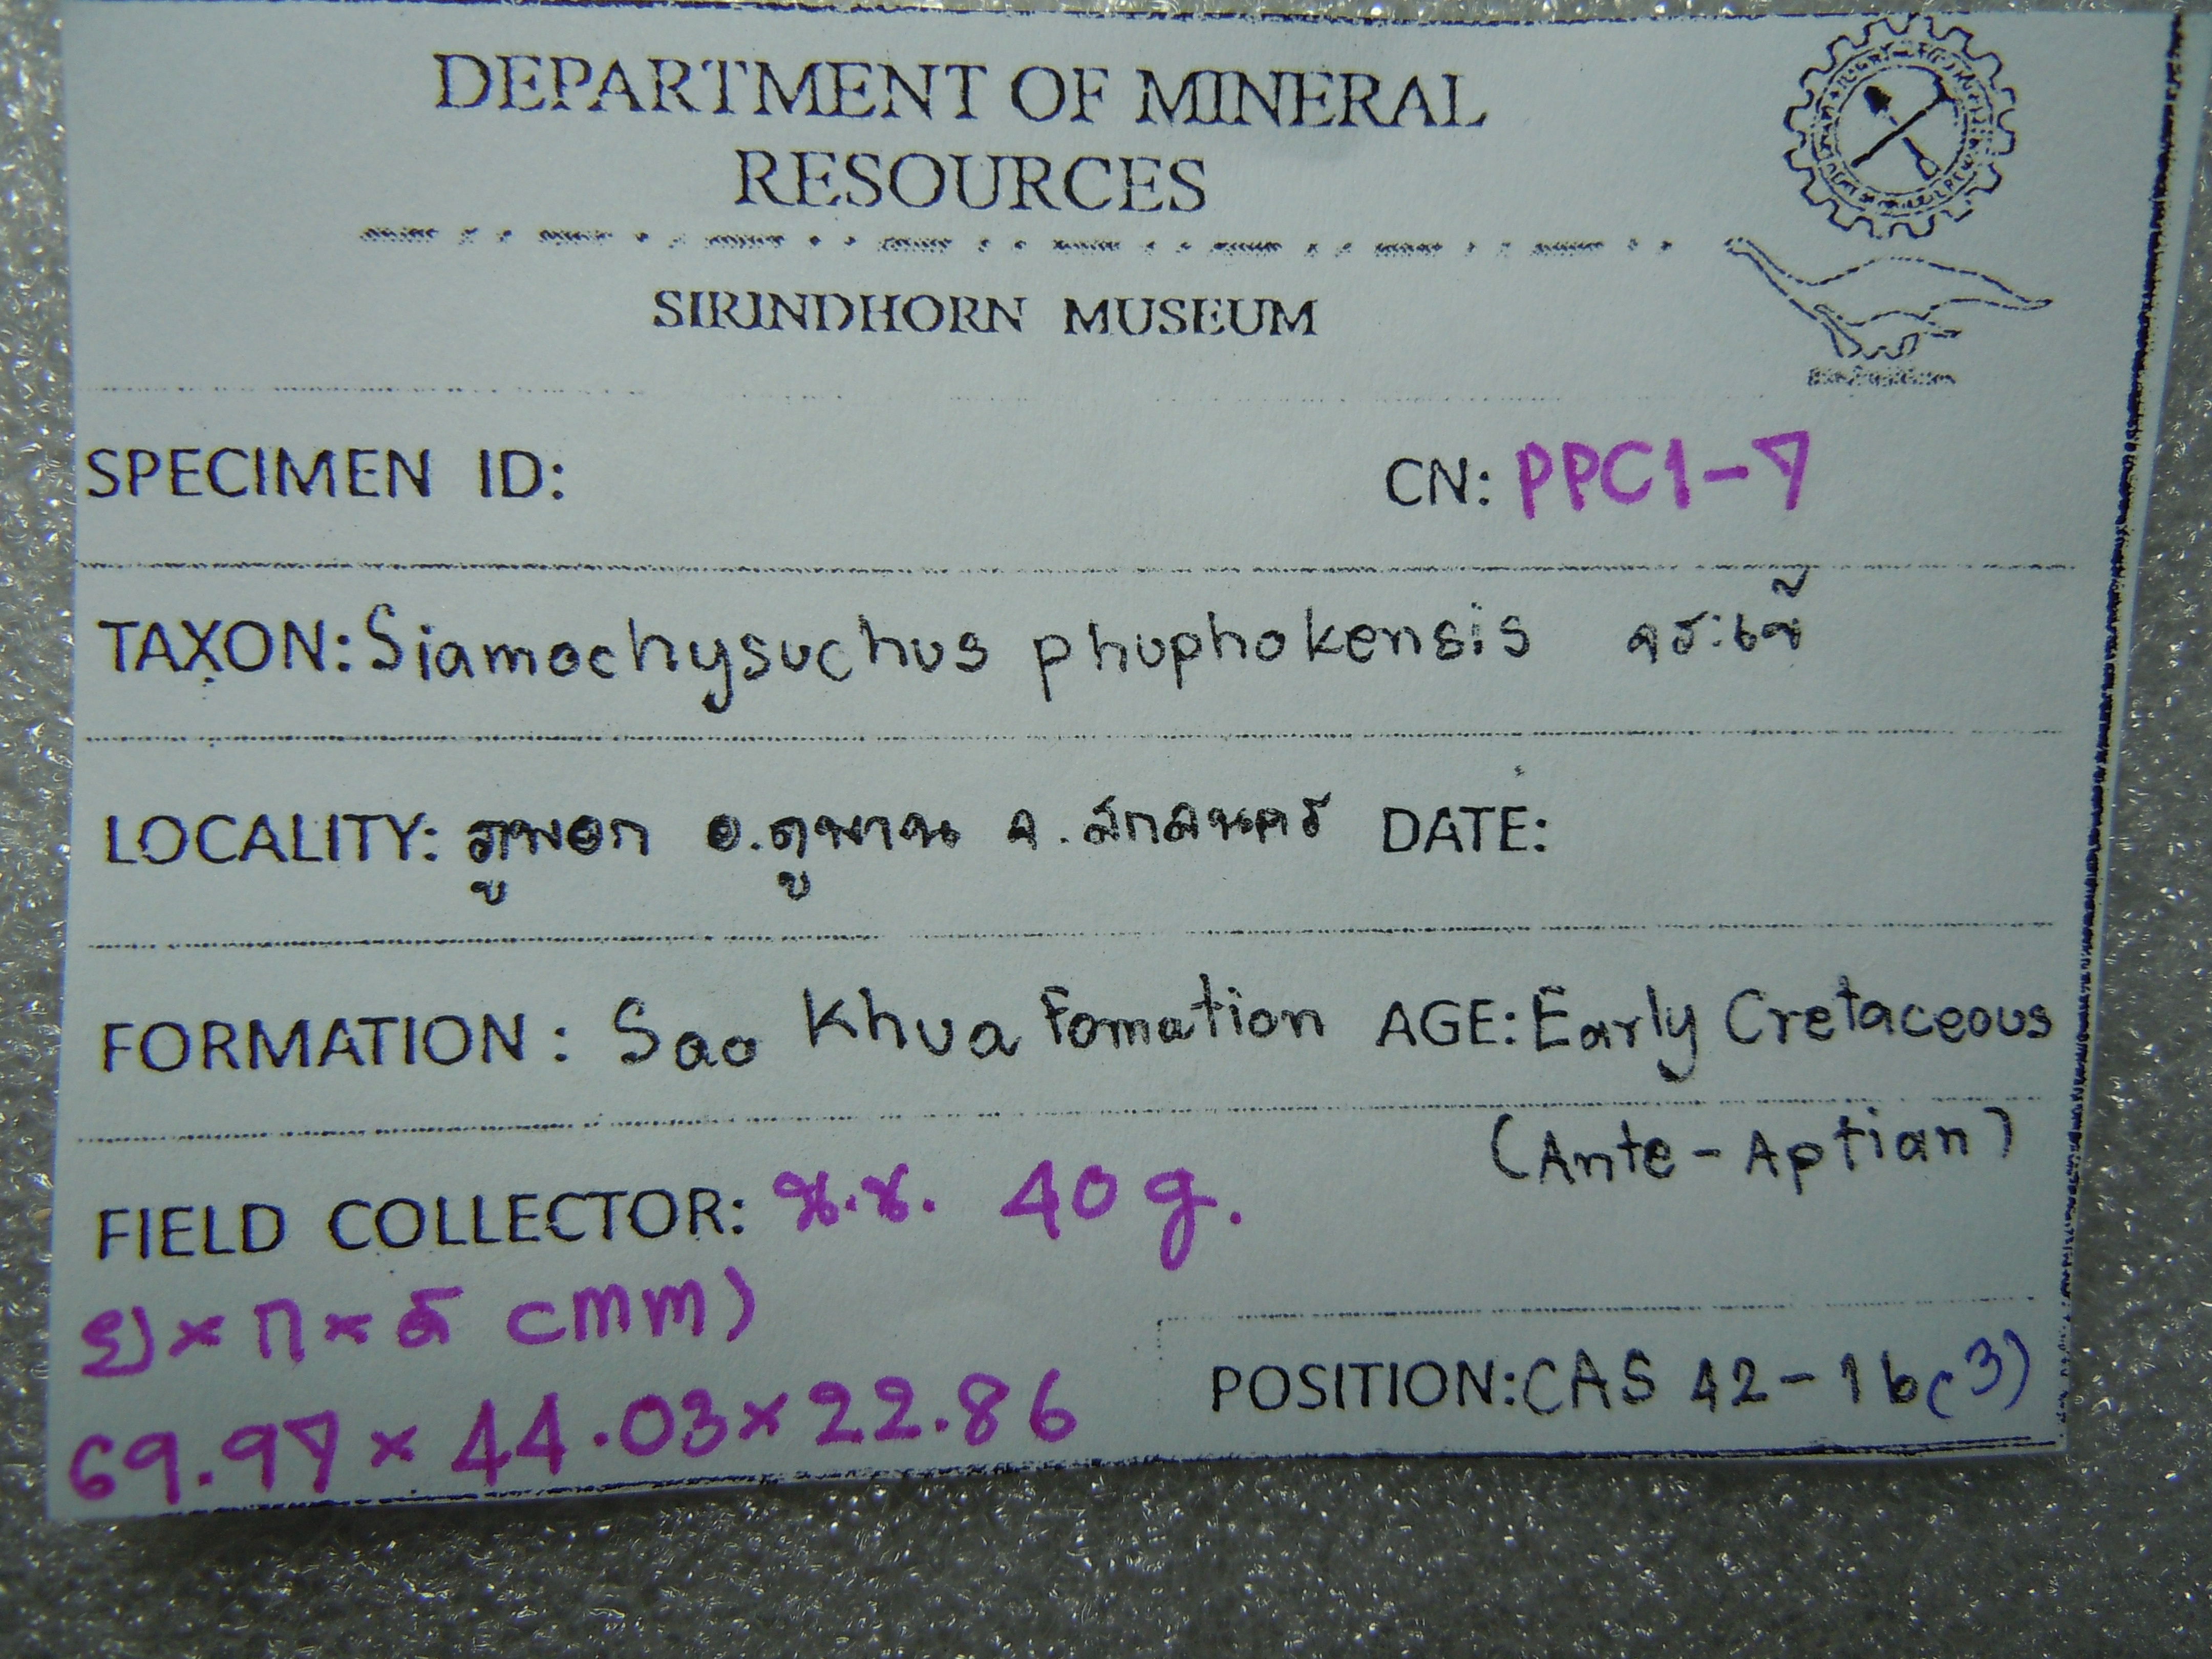 DEPARTMENT OF MINERAL
RESOURCES
SIRINDHORN MUSEUM
SPECIMEN ID: CN: PPC1-7
TAXON: Siamochysuchus phuphokensis จระเข้
LOCALITY: ภูพอก อ.ภูพาน จ.สกลนคร DATE:
FORMATION: Sao Khua Fomation AGE: Early Cretaceous
(Ante-Aptian)
FIELD COLLECTOR: น.น. 40 g.
ย×ก×ส (mm)
69.97×44.03×22.86
POSITION: CAS 42-16(3)